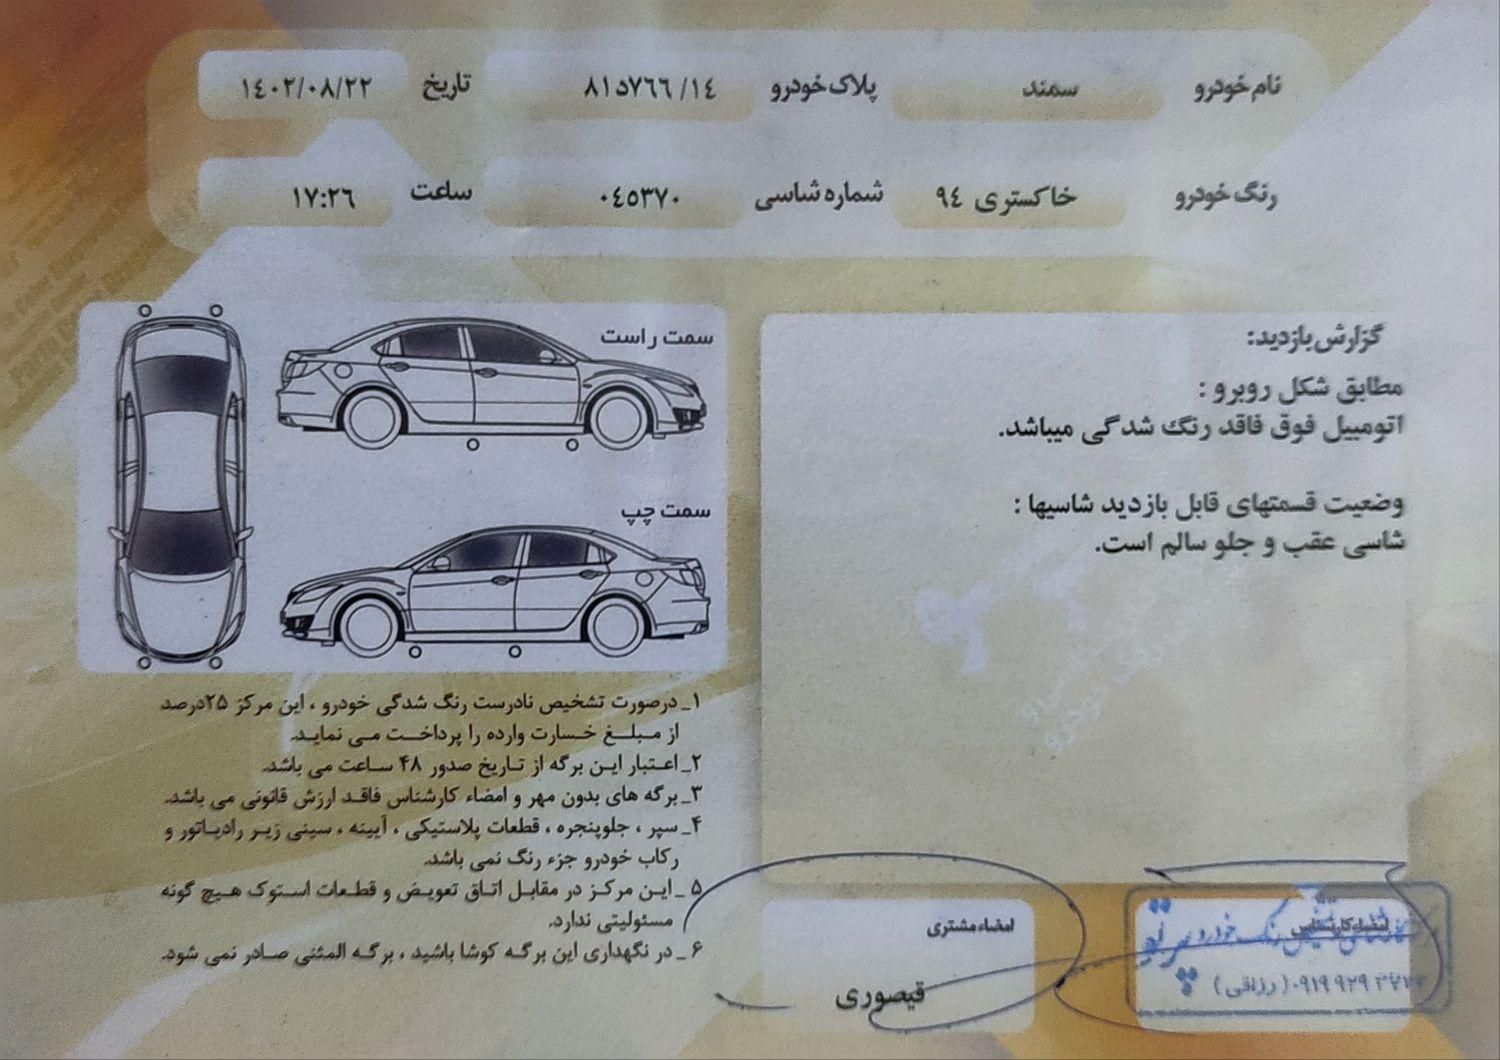 نام خودرو سمند پلاک خودرو ۸۱د۷۶۶/۱٤ تاریخ ۱٤۰۲/۰۸/۲۲
رنگ خودرو خاکستری ۹٤ شماره شاسی ۰٤٥۳۷۰ ساعت ۱۷:۲٦
گزارش بازدید:
مطابق شکل روبرو :
اتومبیل فوق فاقد رنگ شدگی میباشد.
وضعیت قسمتهای قابل بازدید شاسیها :
شاسی عقب و جلو سالم است.
سمت راست
سمت چپ
۱_ درصورت تشخیص نادرست رنگ شدگی خودرو ، این مرکز ۲۵درصد
از مبلغ خسارت وارده را پرداخت می نماید.
۲_ اعتبار این برگه از تاریخ صدور ۴۸ ساعت می باشد.
۳_ برگه های بدون مهر و امضاء کارشناس فاقد ارزش قانونی می باشد.
۴_ سپر ، جلوپنجره ، قطعات پلاستیکی ، آیینه ، سینی زیر رادیاتور و
رکاب خودرو جزء رنگ نمی باشد.
۵_ این مرکز در مقابل اتاق تعویض و قطعات استوک هیچ گونه
مسئولیتی ندارد.
۶_ در نگهداری این برگه کوشا باشید ، برگه المثنی صادر نمی شود.
امضاء کارشناس
رنگ خودرو
(رزاقی)
امضاء مشتری
قیصوری